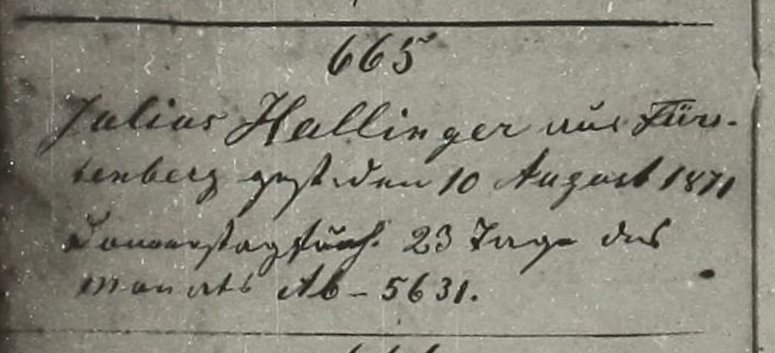 665
Julius Hallinger aus Fürs-
tenberg gest. den 10 August 1871
Donnerstag früh. 23 Tage des
Monats Ab - 5631.